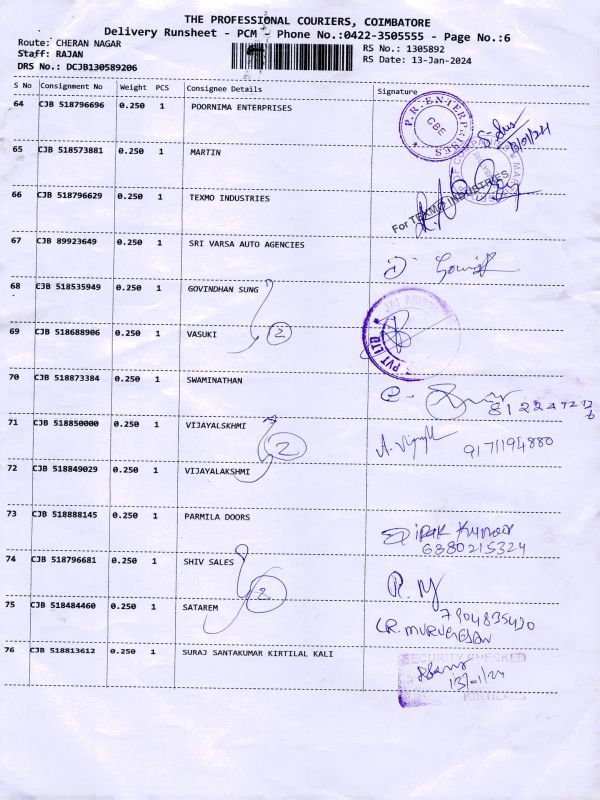 THE PROFESSIONAL COURIERS, COIMBATORE
Delivery Runsheet - PCM - Phone No.:0422-3505555 - Page No.:6
Route: CHERAN NAGAR RS No.: 1305892
Staff: RAJAN RS Date: 13-Jan-2024
DRS No.: DCJB130589206
S No Consignment No Weight PCS Consignee Details Signature
64 CJB 518796696 0.250 1 POORNIMA ENTERPRISES
P.R. ENTERPRISES
CBE
13/01/24
65 CJB 518573881 0.250 1 MARTIN
66 CJB 518796629 0.250 1 TEXMO INDUSTRIES
For TEXMO INDUSTRIES
67 CJB 89923649 0.250 1 SRI VARSA AUTO AGENCIES
68 CJB 518535949 0.250 1 GOVINDHAN SUNG
2
69 CJB 518688906 0.250 1 VASUKI
PVT LTD
70 CJB 518873384 0.250 1 SWAMINATHAN
71 CJB 518850000 0.250 1 VIJAYALSKHMI
2
9171194880
72 CJB 518849029 0.250 1 VIJAYALAKSHMI
73 CJB 518888145 0.250 1 PARMILA DOORS
Dipak Kumar
6380215324
74 CJB 518796681 0.250 1 SHIV SALES
2
R. M
75 CJB 518484460 0.250 1 SATAREM
7904835420
R. MURUGESAN
76 CJB 518813612 0.250 1 SURAJ SANTAKUMAR KIRTILAL KALI
SECURITY CHECKED
13/01/24
KIRTILAL